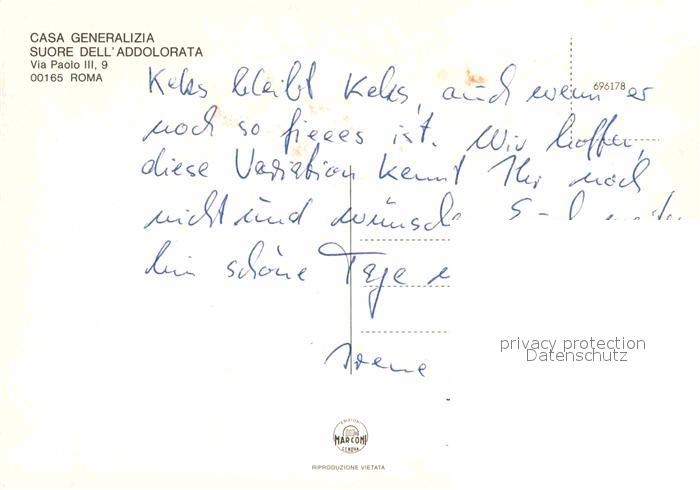 CASA GENERALIZIA
SUORE DELL'ADDOLORATA
Via Paolo III, 9
00165 ROMA
696178
Keks bleibt Keks, auch wenn er
noch so fieses ist. Wir hoffen,
diese Variation kennt Ihr noch
nicht und
hin schöne Tage
Irene
privacy protection
Datenschutz
EDIZIONI
MARCONI
GENOVA
RIPRODUZIONE VIETATA